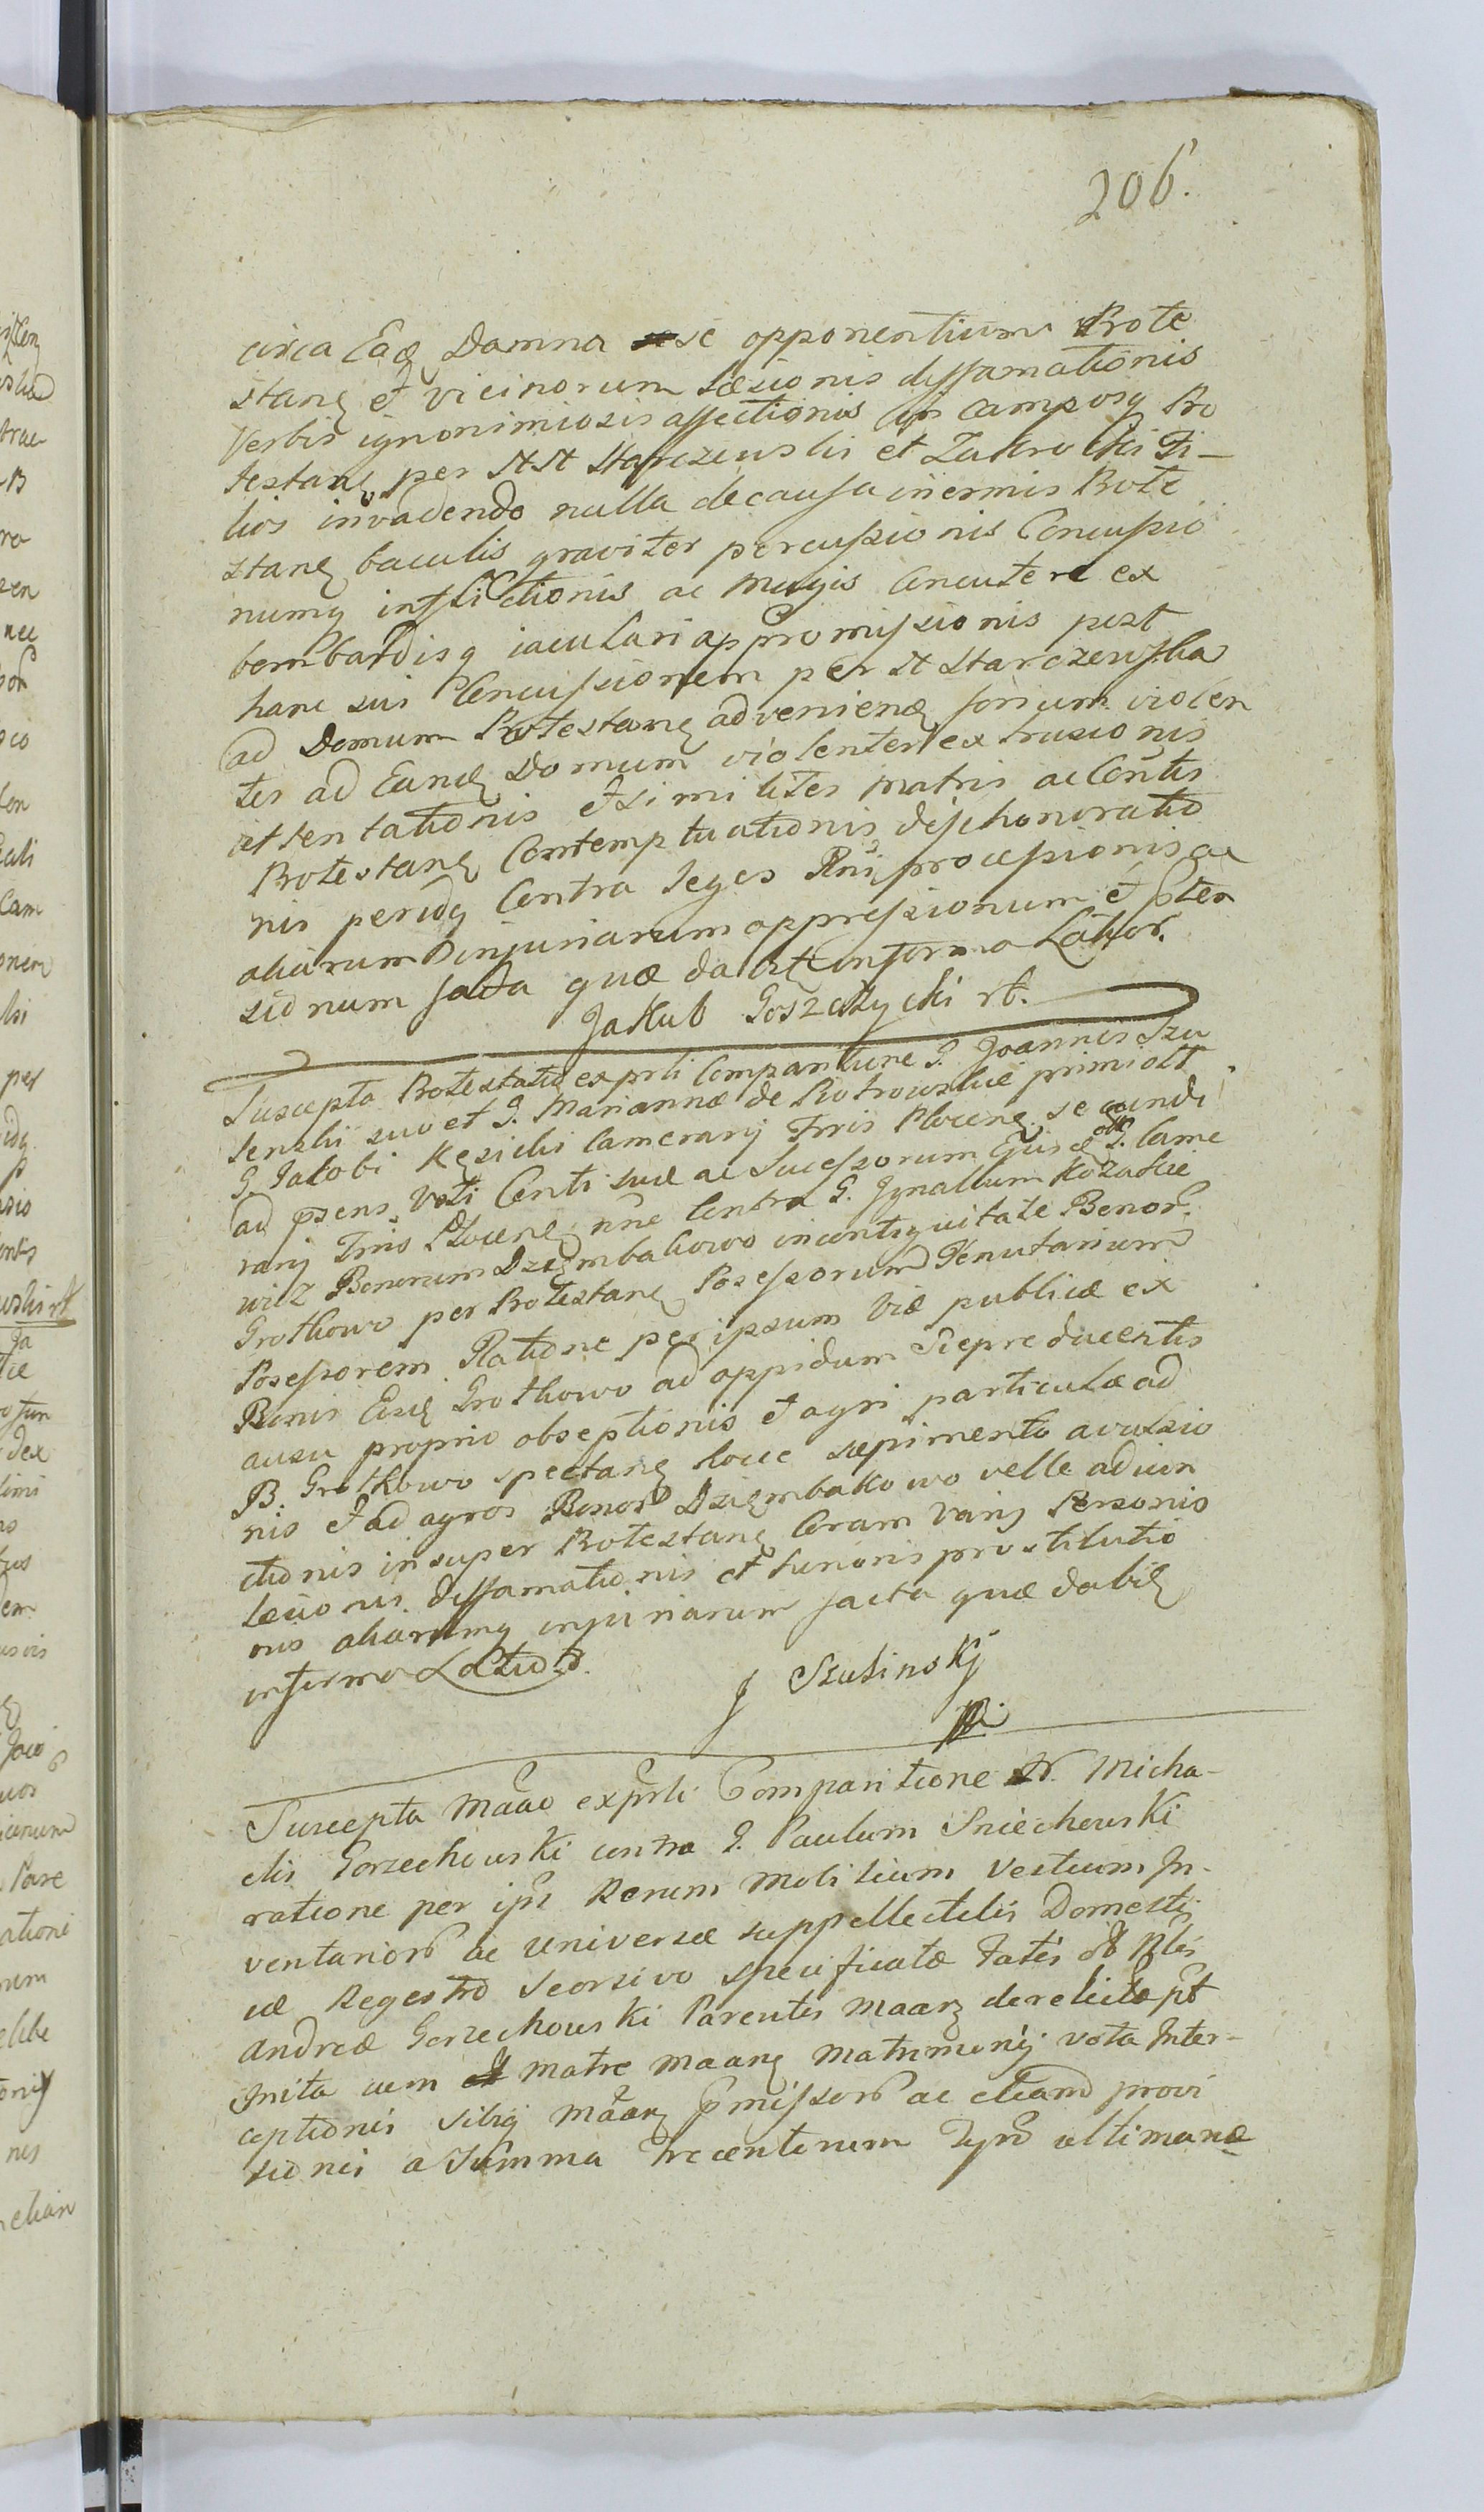 206.
circa Eaq Damna se opponentium Prote
stanq et vicinorum Læsionis diffamationis
Verbis ignonimiosis affectionis in camposq Pro
testanq per NN Starczewski et Zakrocki Fi-
lios invadendo nulla de causa inermis Prote
stanq baculis graviter percussionis Concussio
numq inflictionis ac magis Concutere ex
bombardisq iaculari appromissionis post
hanc sui Concussionem per N Starczewska
ad Domum Protestanq advenienq forium violen
ter ad Eandq Domum violenter extrusionis
attentationis et similiter Matris ac Contis
Protestanq Contemptuationis dishonoratio
nis peridq Contra leges Rni processionis ac
aliarum injuriarum oppressionum et Often
sionum facta quæ dabit in forma Latior.
Jakub Goszczycki rt.
Suscepta Protestatio ex prti Comparitione G. Joannis Szu
lenski suo et G. Mariannæ de Piotrowskie primi olt
G. Jakobi Kęsicki Camerarij Trris Plocenq secundi
ad præns Voti Conti suæ ac Successorum Ejusd olt G. Came
rarij Trris Plocenq nne Contra G. Ignatium Kozakie
wicz Bonorum Dziembakowo in contiguitate Bonor.
Grotkowo per Protestanq Possessorum Tenutarium
Possessorem Ratione per ipsum Viæ publicæ ex
Bonis Eisq Grotkowo ad oppidum Sieprc ducentis
ausu proprio obseptionis et agri particulæ ad
B. Grotkowo spectanq hocce sæpimento avulsio
nis et ad agros Bonor Dziembakowo velle adiun
ctionis insuper Protestanq Coram Varijs Personis
Læsionis diffamationis et funoris prostitutio
nis aliarumq injuriarum facta quæ dabitq
in forma Latior.
J Szulinskj
Suscepta Maao ex prti Comparitione N. Micha-
elis Gorzechowski contra G. Paulum Sniechowski
ratione per ips Rerum Mobilium Vestium In-
ventarior ac universæ suppellectilis Domesti
cæ Regestro seorsivo specificatæ Fatis olt Nlis
Andreæ Gorzechowski Parentis Maarq derelictæ pt
Inita cum Matre Maanq Matrimonij vota Inter-
ceptionis sibiq Maarq pmissor ac etiam provi
sionis a Summa Trecentorum Typf ultimariæ